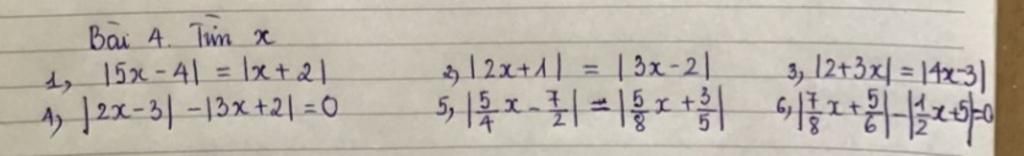 Bài 4. Tìm x
1, |5x - 4| = |x + 2| 2, |2x + 1| = |3x - 2| 3, |2 + 3x| = |4x - 3|
4, |2x - 3| - |3x + 2| = 0 5, |5/4 x - 7/2| = |5/8 x + 3/5| 6, |7/8 x + 5/6| - |1/2 x + 5| = 0